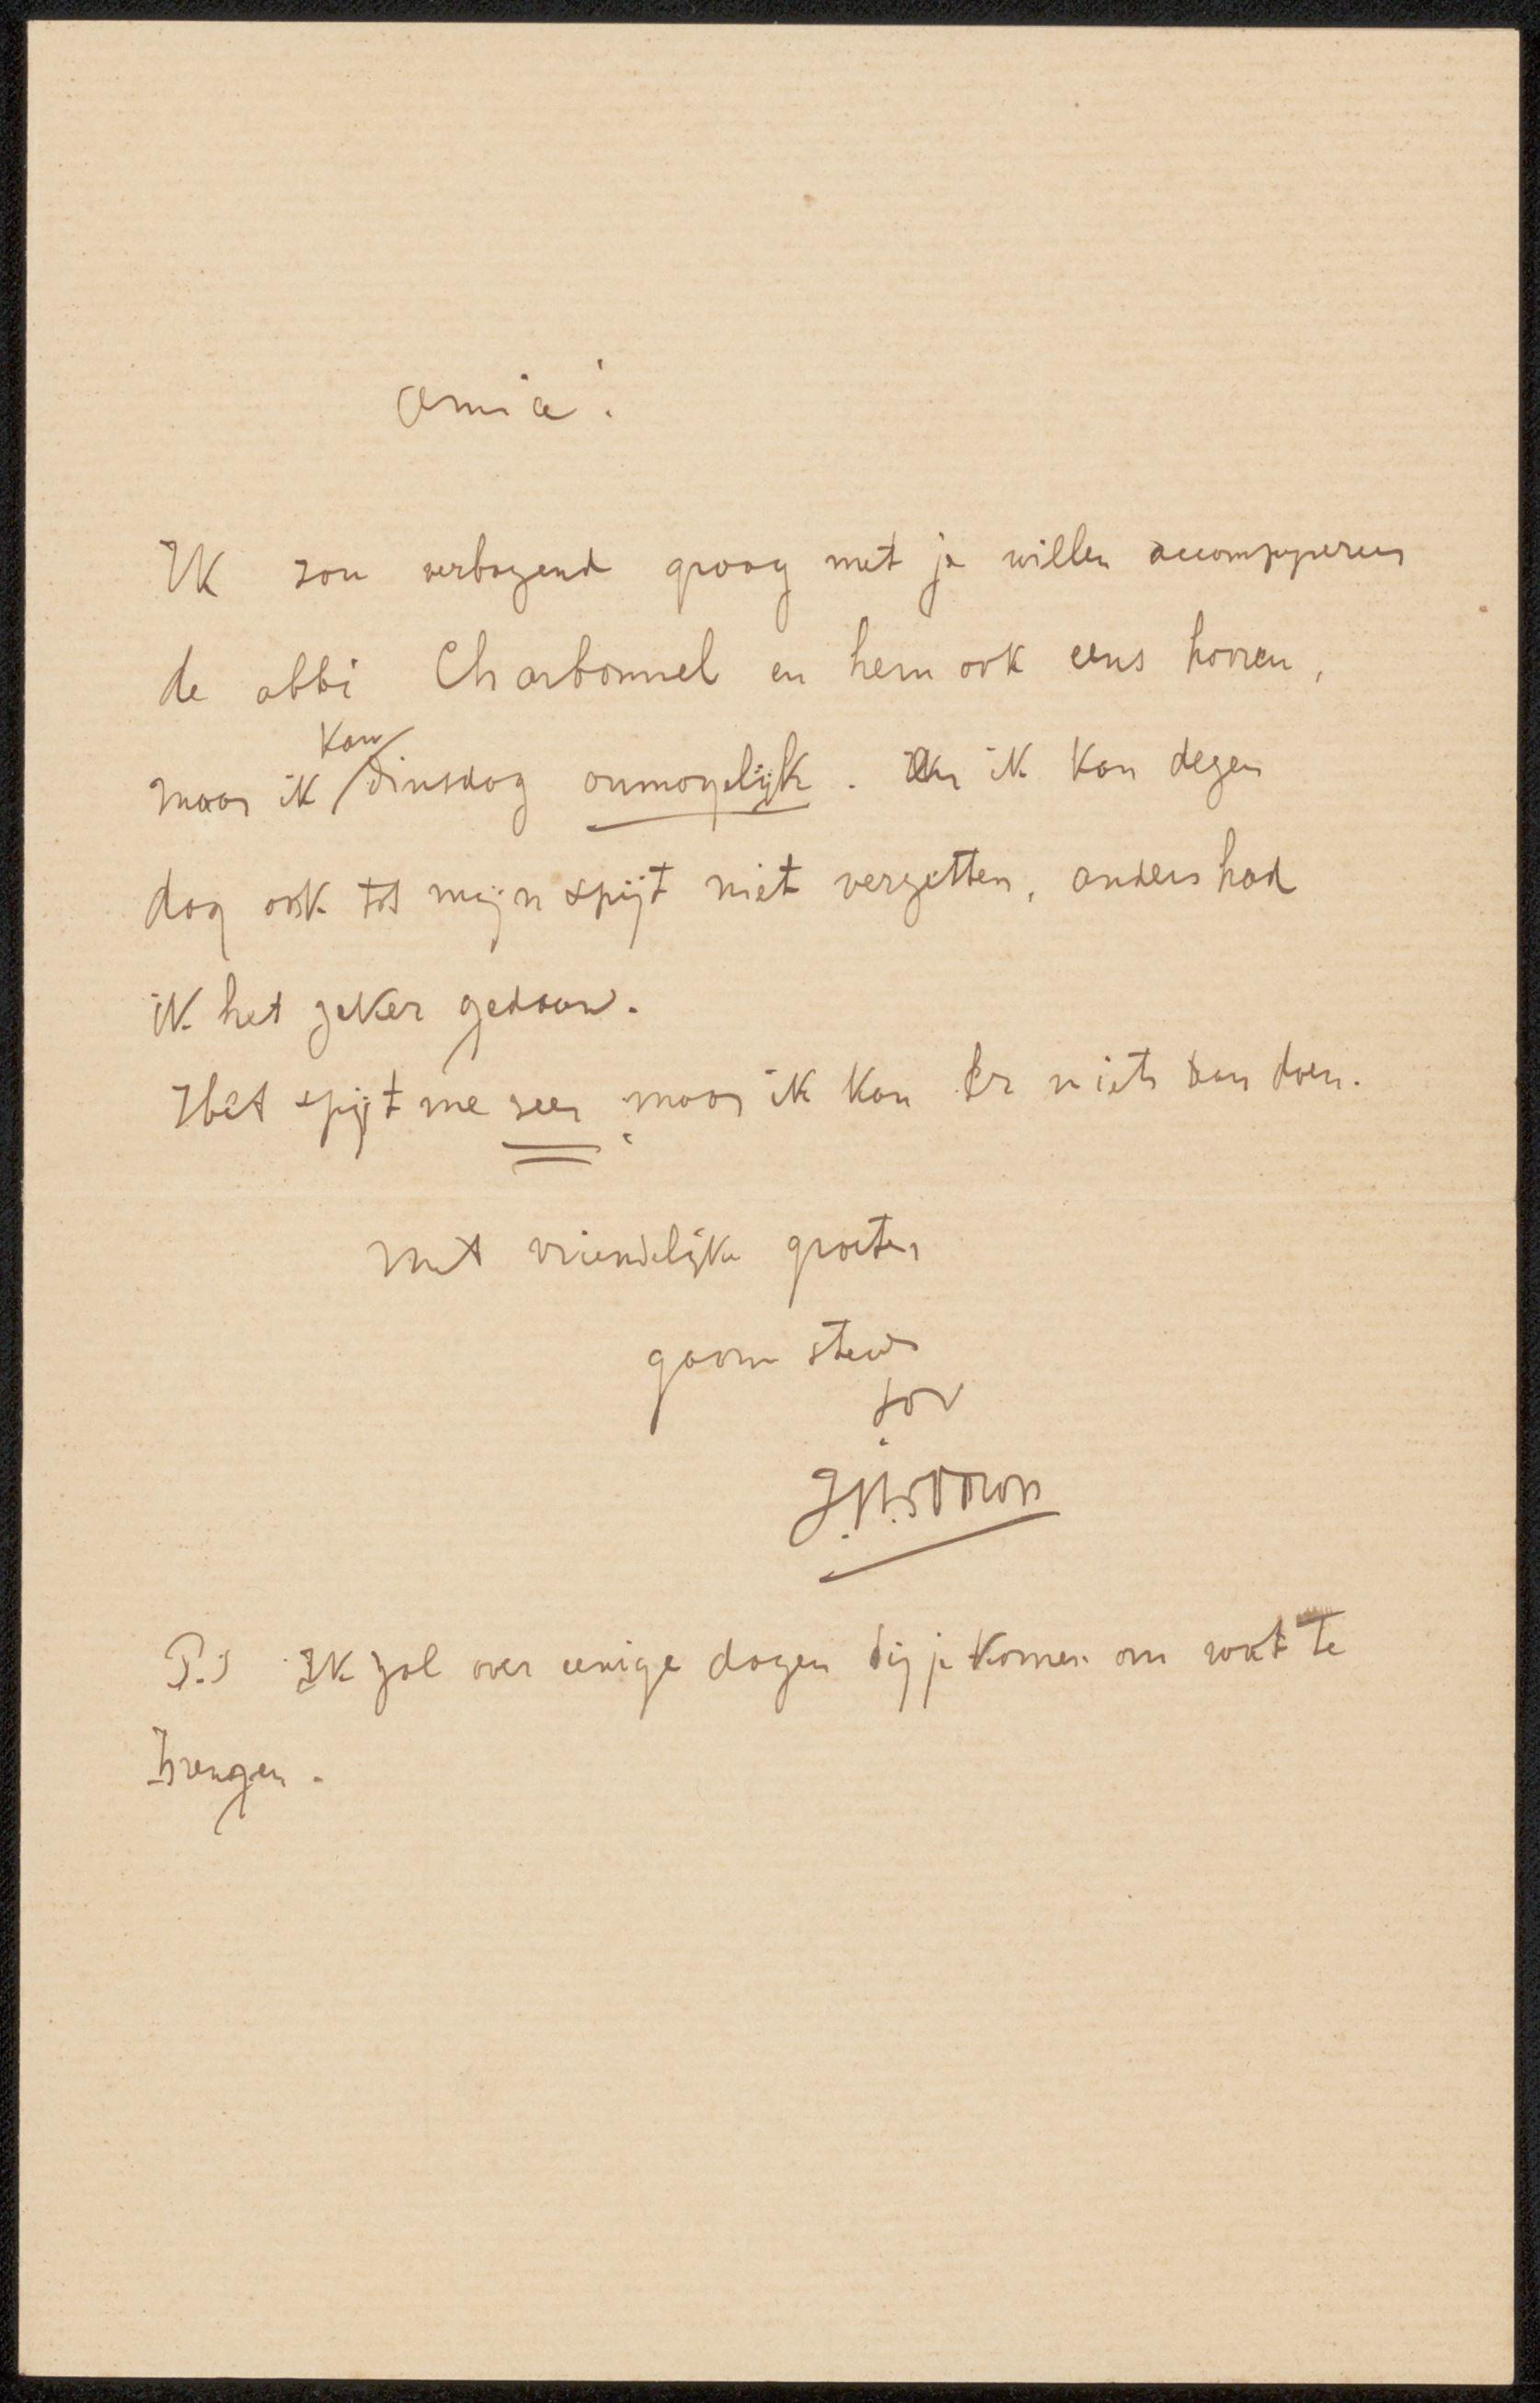 Amice!
Ik zou verbazend graag met je willen
de abbé Charbonnel en hem ook eens hooren,
maar ik kan dinsdag onmogelijk. en ik kan dezen
dag ook tot mijn spijt niet verzetten, anders had
ik het zeker gedaan.
Het spijt me zeer maar ik kan er niets aan doen.
Met vriendelijke groeten
gaarne steeds
tov
P.S Ik zal over eenige dagen bij je komen om wat te
brengen.